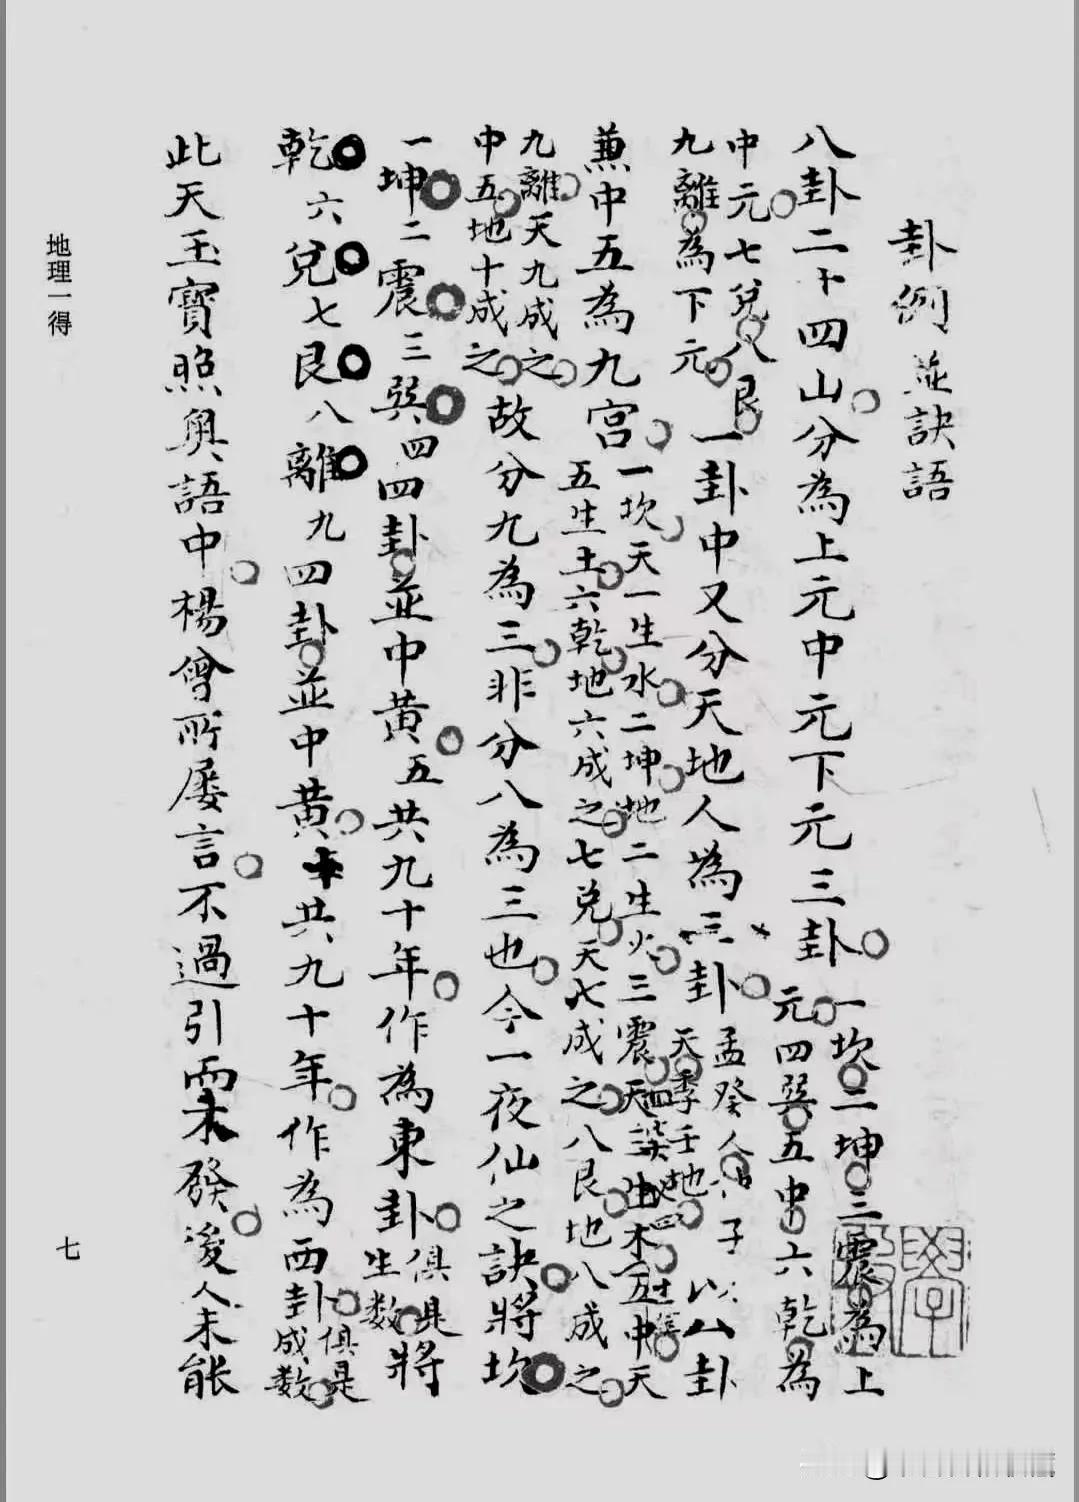 卦例並訣語
八卦二十四山分為上元中元下元三卦
一坎二坤三震為上
元四巽五中六乾為
中元七兌八艮
九離為下元
一卦中又分天地人為三卦
以八卦
兼中五為九宮
一坎天一生水二坤地二生火三震天
五中天
五生土六乾地六成之七兌天七成之八艮地八成之
九離天九成之
中五地十成之
故分九為三非分八為三也今一夜仙之訣將坎
一坤二震三巽四四卦並中黃五共九十年作為東卦
俱是
生數
將
乾六兌七艮八離九四卦並中黃十共九十年作為西卦
俱是
成数
此天玉寶照奧語中楊曾所屡言不過引而未發後人未能
地理一得
七